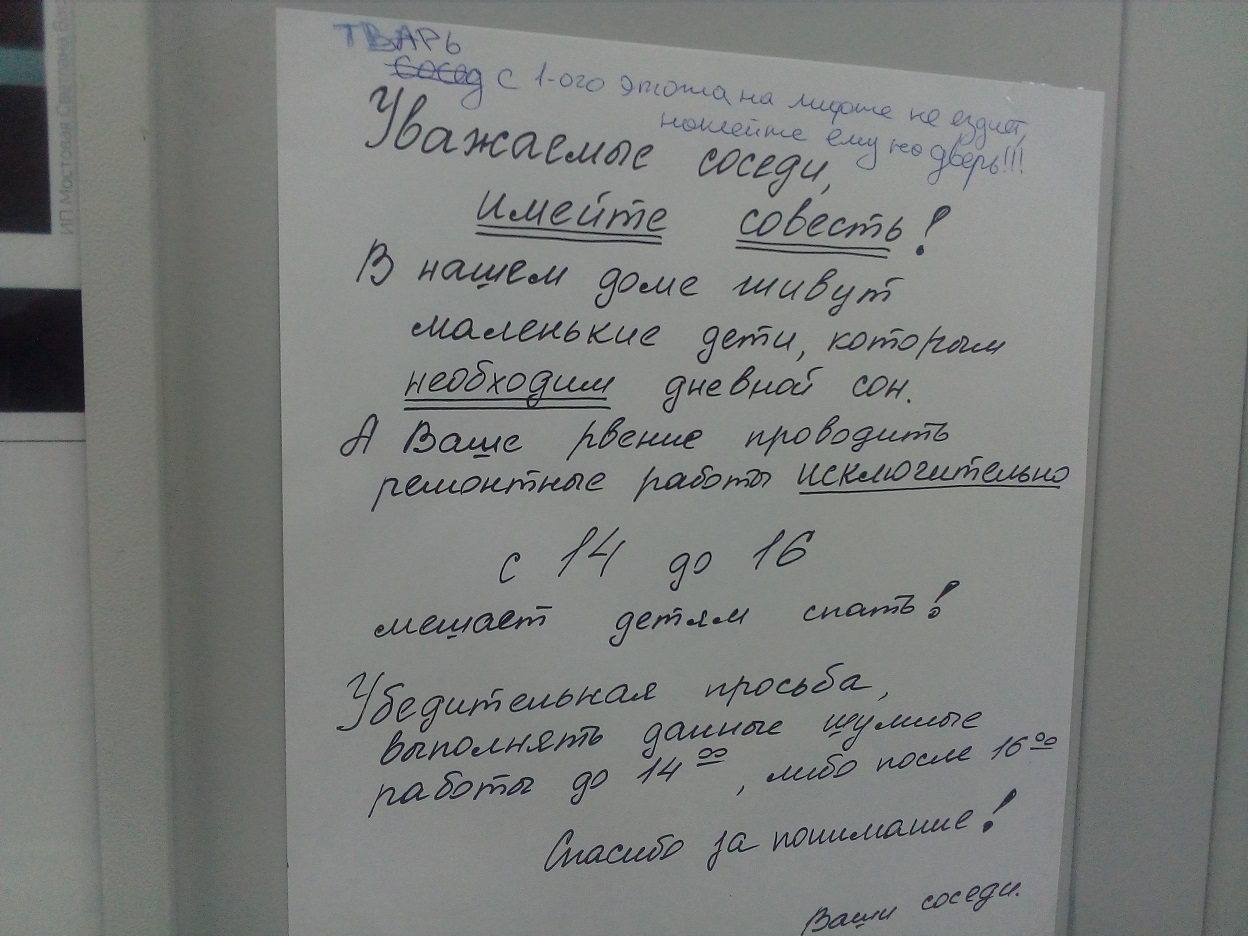 ТВАРЬ
сосед с 1-ого этажа на лифте не ездит,
наклейте ему на дверь!!!
Уважаемые соседи,
имейте совесть!
В нашем доме живут
маленькие дети, которым
необходим дневной сон.
А Ваше рвение проводить
ремонтные работы исключительно
с 14 до 16
мешает детям спать!
Убедительная просьба,
выполнять данные шумные
работы до 14ºº, либо после 16ºº
Спасибо за понимание!
Ваши соседи.
ИП Мостовая Светлана